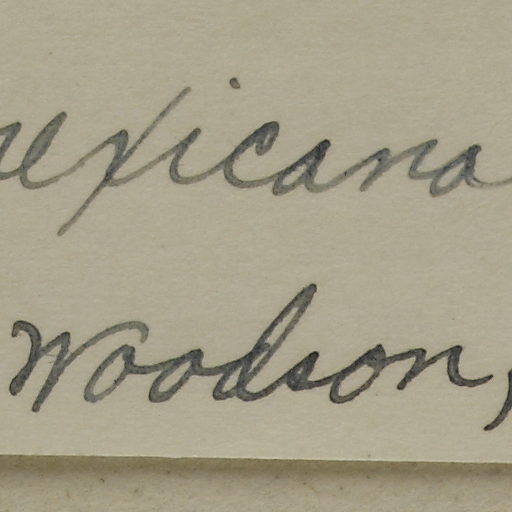 mexicana
Woodson,